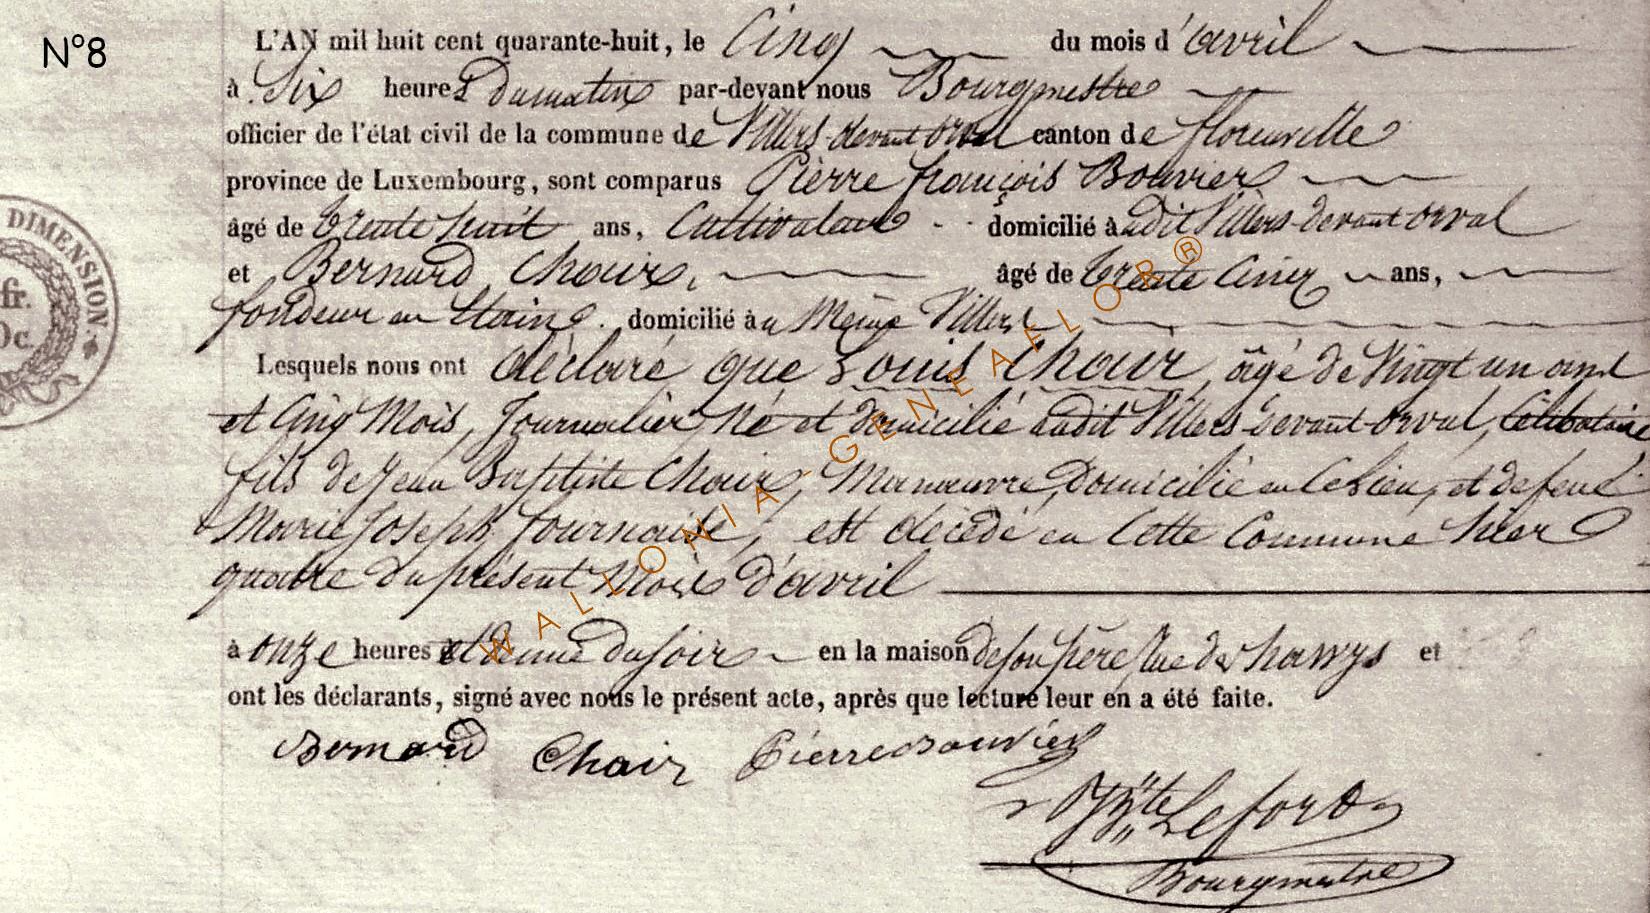 N°8
L'AN mil huit cent quarante-huit, le Cinq du mois d'avril
à Six heures Dumatin par-devant nous Bourgmestre
officier de l'état civil de la commune de Villers-devant-orval canton de florenville
province de Luxembourg, sont comparus Pierre françois Bouvier
âgé de trente huit ans, Cultivateur domicilié à udit Villers-devant orval
et Bernard Choix, âgé de trente Cinq ans,
fondeur en Etaing. domicilié à u Même Villers
Lesquels nous ont déclaré que Louis Choix, âgé de Vingt un ans
et Cinq Mois, Journalier Né et domicilié audit Villers-devant-orval, Célibataire
fils de Jean Baptiste Choix, Manœuvre, Domicilié en Ce lieu, et de feue
Marie Joseph, est décédé en Cette Commune hier
quatre du présent Mois D'avril
à onze heures et Demie Du soir en la maison de son père Rue de et
ont les déclarants, signé avec nous le présent acte, après que lecture leur en a été faite.
Bernard Choix Pierre Bouvier
Lefort
Bourgmestre
DIMENSION.
fr.
0c.
WALLONIA-GENEAFLOR®